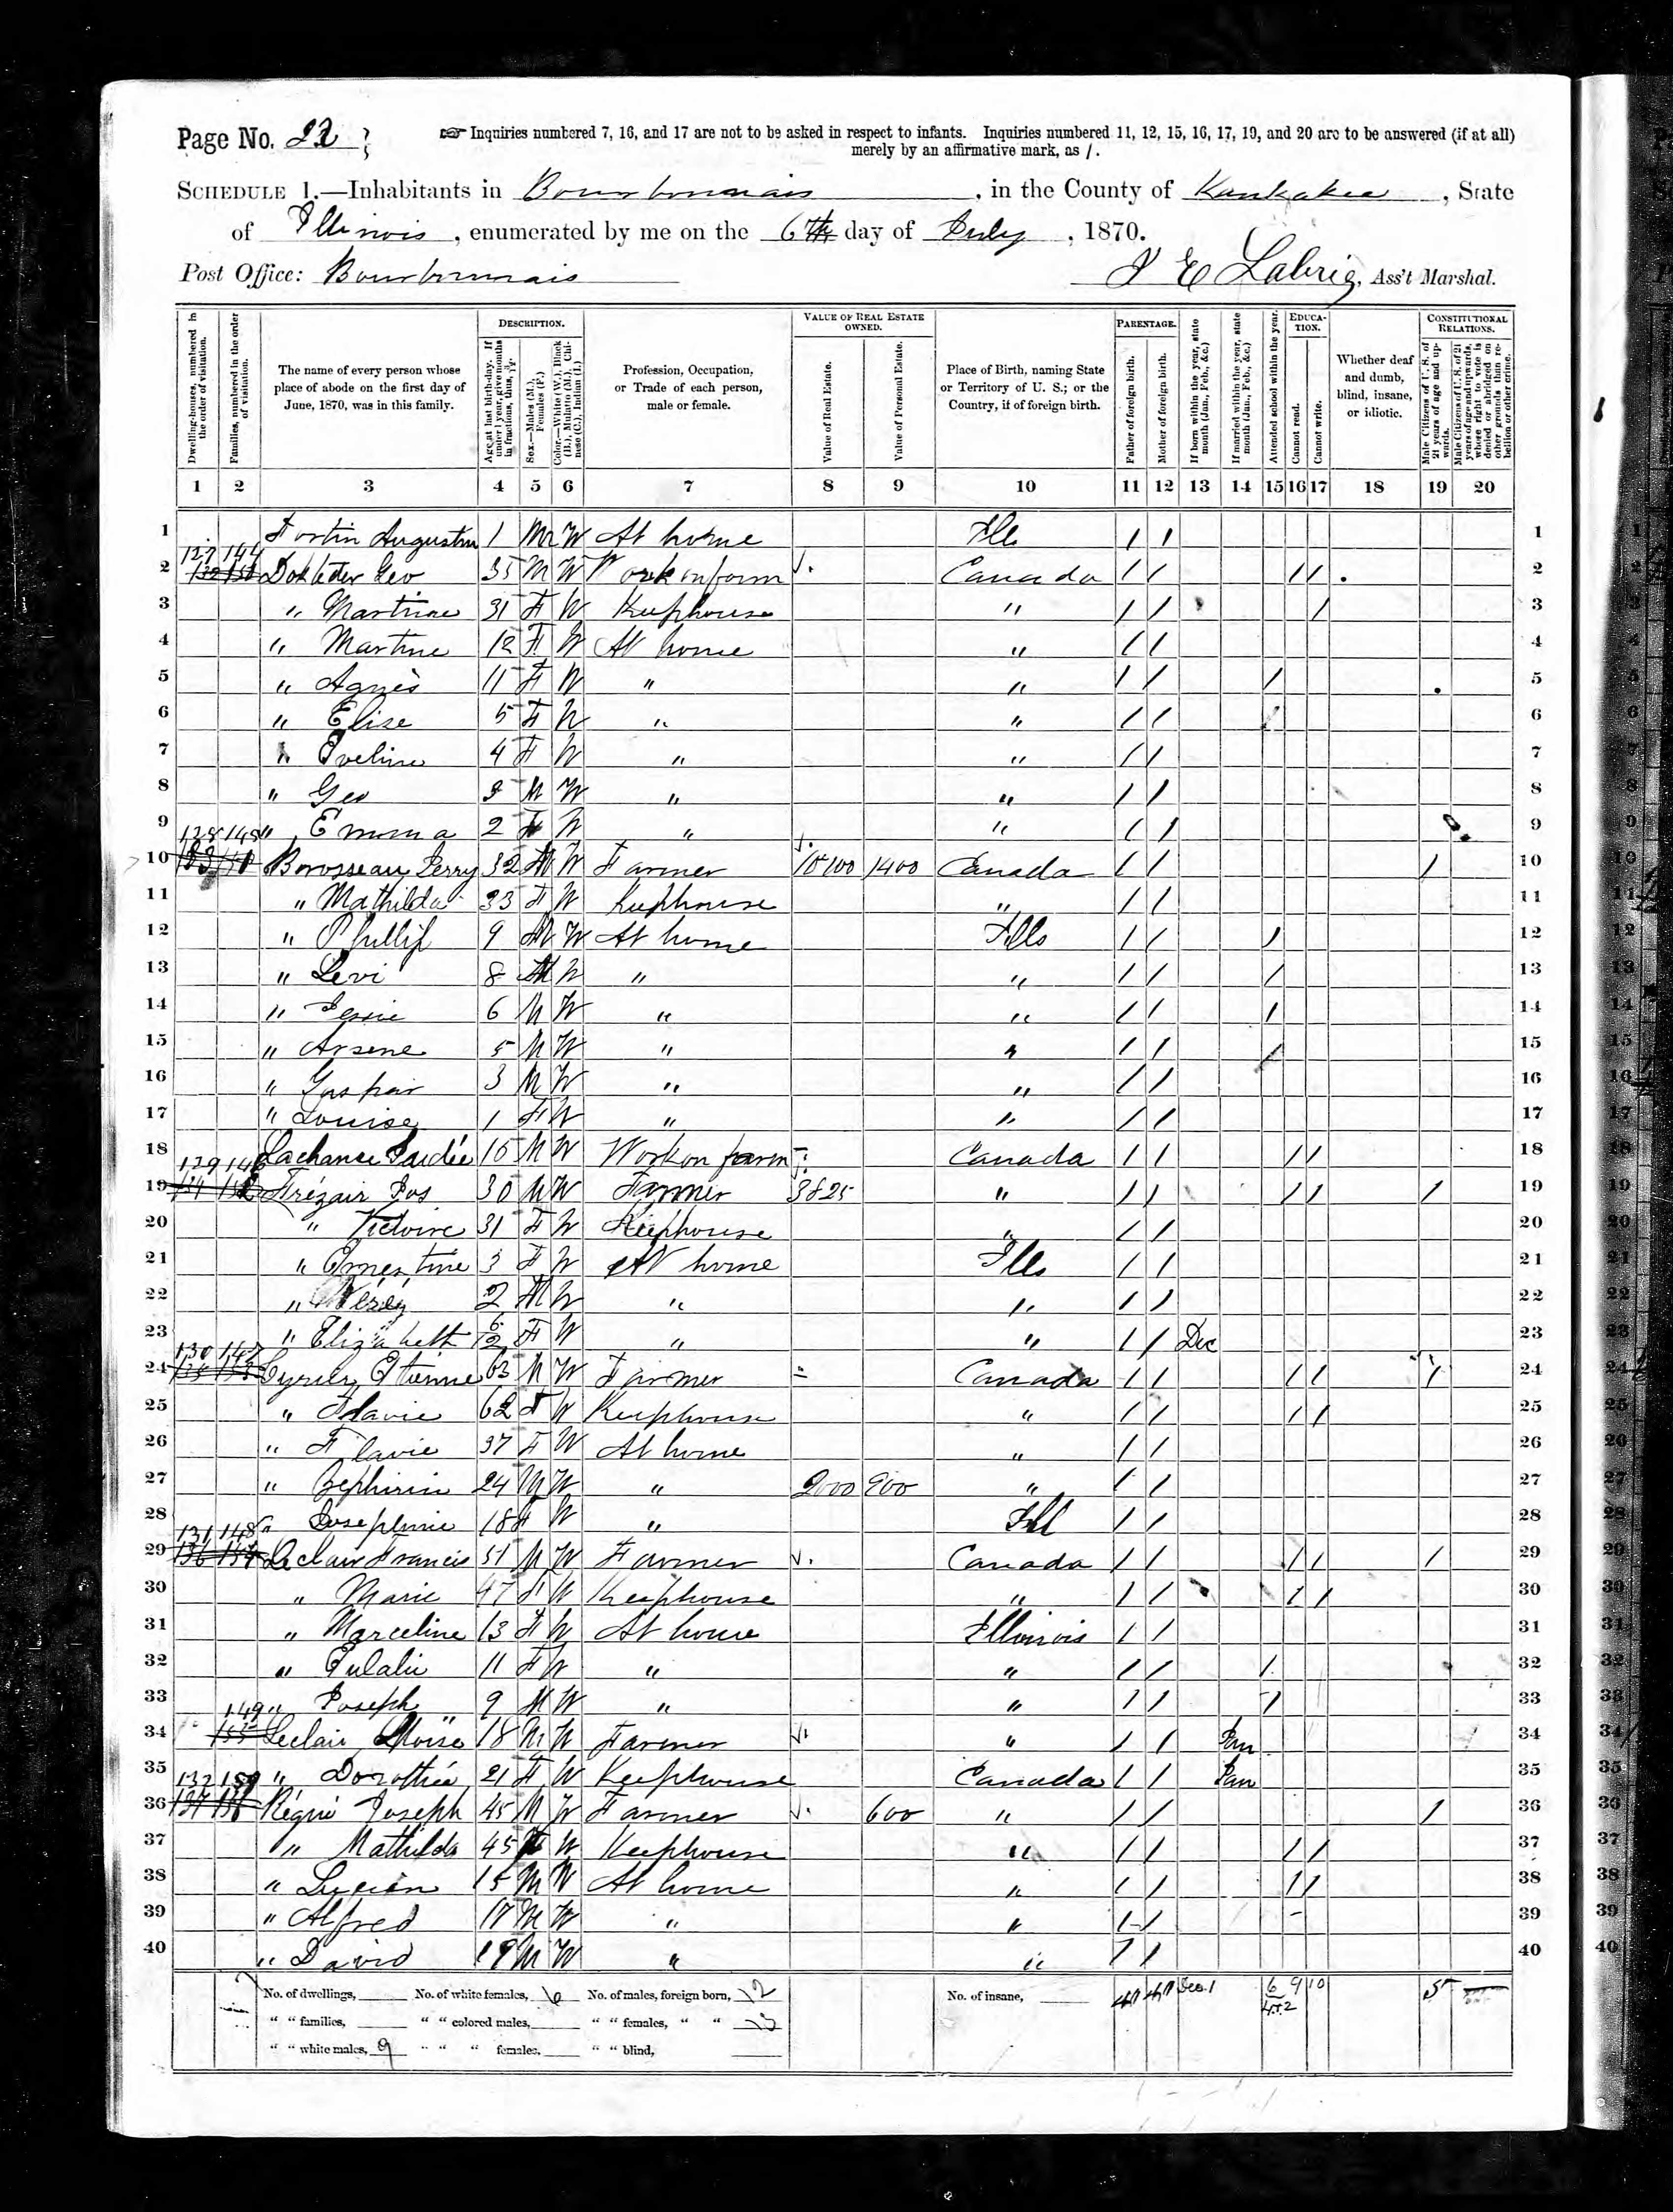 Page No. 22
☞ Inquiries numbered 7, 16, and 17 are not to be asked in respect to infants. Inquiries numbered 11, 12, 15, 16, 17, 19, and 20 are to be answered (if at all)
merely by an affirmative mark, as /.
SCHEDULE 1.—Inhabitants in Bourbonnais, in the County of Kankakee, State
of Illinois, enumerated by me on the 6th day of July, 1870.
Post Office: Bourbonnais
Ass't Marshal.
Dwelling-houses, numbered in the order of visitation.
Families, numbered in the order of visitation.
The name of every person whose place of abode on the first day of June, 1870, was in this family.
DESCRIPTION.
Age at last birth-day. If under 1 year, give months in fractions, thus, 3/12.
Sex.—Males (M.), Females (F.)
Color.—White (W.), Black (B.), Mulatto (M.), Chinese (C.), Indian (I.)
Profession, Occupation, or Trade of each person, male or female.
VALUE OF REAL ESTATE OWNED.
Value of Real Estate.
Value of Personal Estate.
Place of Birth, naming State or Territory of U. S.; or the Country, if of foreign birth.
PARENTAGE.
Father of foreign birth.
Mother of foreign birth.
If born within the year, state month (Jan., Feb., &c.)
If married within the year, state month (Jan., Feb., &c.)
Attended school within the year.
EDUCATION.
Cannot read.
Cannot write.
Whether deaf and dumb, blind, insane, or idiotic.
CONSTITUTIONAL RELATIONS.
Male Citizens of U. S. of 21 years of age and upwards.
Male Citizens of U. S. of 21 years of age and upwards, whose right to vote is denied or abridged on other grounds than rebellion or other crime.
1 2 3 4 5 6 7 8 9 10 11 12 13 14 15 16 17 18 19 20
1 Fortin Augustin 1 M W At home Ills / / 1
2 127 144 Geo 35 M W Work on farm Canada / / / / 2
3 " Martine 31 F W Keephouse " / / / 3
4 " Martine 12 F W At home " / / 4
5 " Agnès 11 F W " " / / / 5
6 " Elise 5 F W " " / / / 6
7 " Eveline 4 F W " " / / 7
8 " Geo 3 M W " " / / 8
9 " Emma 2 F W " " / / 9
10 128 145 Perry 32 M W Farmer 1400 Canada / / / 10
11 " Mathilda 33 F W Keephouse " / / 11
12 " Phillip 9 M W At home Ills / / / 12
13 " Levi 8 M W " " / / / 13
14 " Jessie 6 M W " " / / / 14
15 " Arsene 5 M W " " / / / 15
16 " Gaspar 3 M W " " / / 16
17 " Louise 1 F W " " / / 17
18 Lachance 15 M W Work on farm Canada / / / / 18
19 129 146 Jos 30 M W Farmer 3825 " / / / / / 19
20 " Victoire 31 F W Keephouse " / / 20
21 " Ernestine 3 F W At home Ills / / 21
22 " 2 M W " " / / 22
23 " Elizabeth 6/12 F W " " / / Dec 23
24 130 147 Etienne 63 M W Farmer Canada / / / / / 24
25 " Flavie 62 F W Keephouse " / / / / 25
26 " Flavie 37 F W At home " / / 26
27 " Zephirin 24 M W " 2000 900 " / / 27
28 " Josephine 18 F W " Ill / / 28
29 131 148 Leclair Francis 51 M W Farmer Canada / / / / / 29
30 " Marie 47 F W Keephouse " / / / / 30
31 " Marceline 13 F W At home Illinois / / 31
32 " Eulalie 11 F W " " / / / 32
33 " Joseph 9 M W " " / / / 33
34 149 Leclair Moïse 18 M W Farmer " / / Jan 34
35 " Dorothée 21 F W Keephouse Canada / / Jan 35
36 132 150 Joseph 45 M W Farmer 600 " / / / 36
37 " Mathilda 45 F W Keephouse " / / / / 37
38 " Lucien 15 M W At home " / / / / 38
39 " Alfred 17 M W " " / / 39
40 " David 19 M W " " / / 40
No. of dwellings, No. of white females, No. of males, foreign born, 12 No. of insane,
" " families, " " colored males, " " females, " "
" " white males, " " " females, " " blind,